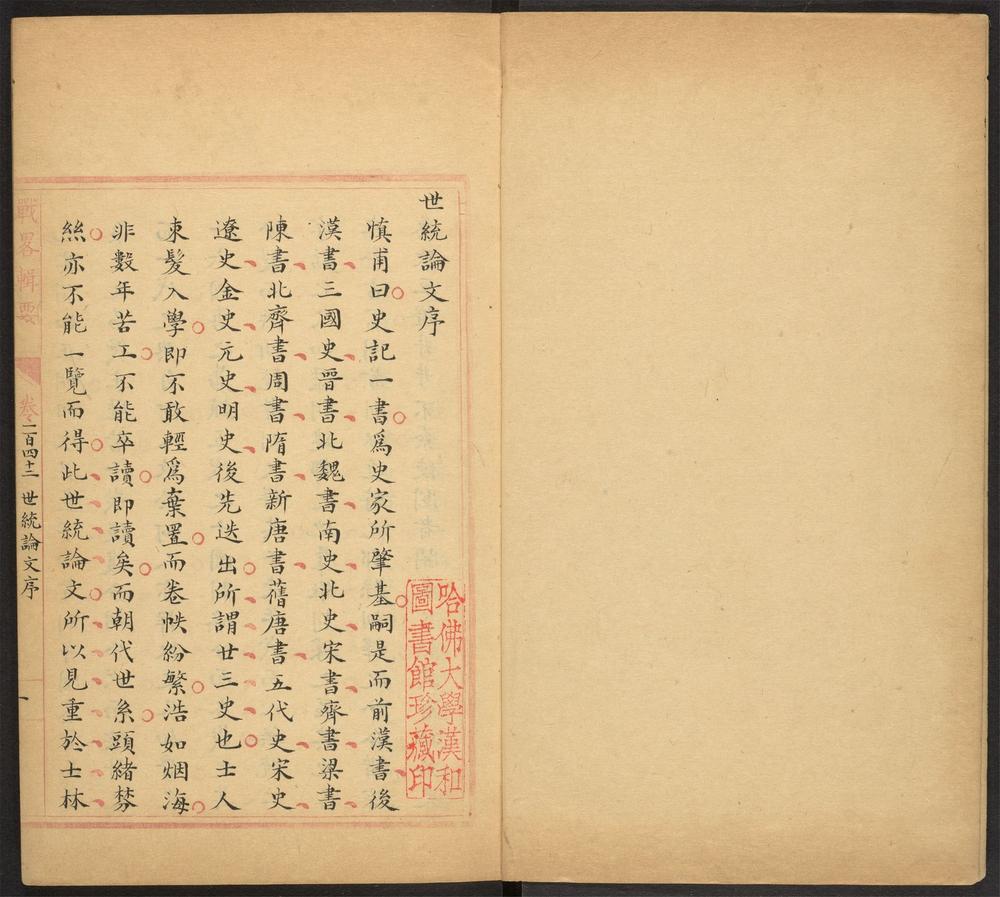 世統論文序
慎甫曰史記一書爲史家所肇基嗣是而前漢書後
漢書三國史晉書北魏書南史北史宋書齊書梁書
陳書北齊書周書隋書新唐書舊唐書五代史宋史
遼史金史元史明史後先迭出所謂廿三史也士人
束髮入學即不敢輕爲棄置而卷帙紛繁浩如烟海
非數年苦工不能卒讀即讀矣而朝代世系頭緒棼
絲亦不能一覽而得此世統論文所以見重於士林
哈佛大學漢和
圖書館珍藏印
戰畧輯要
卷之二百四十三 世統論文序
一